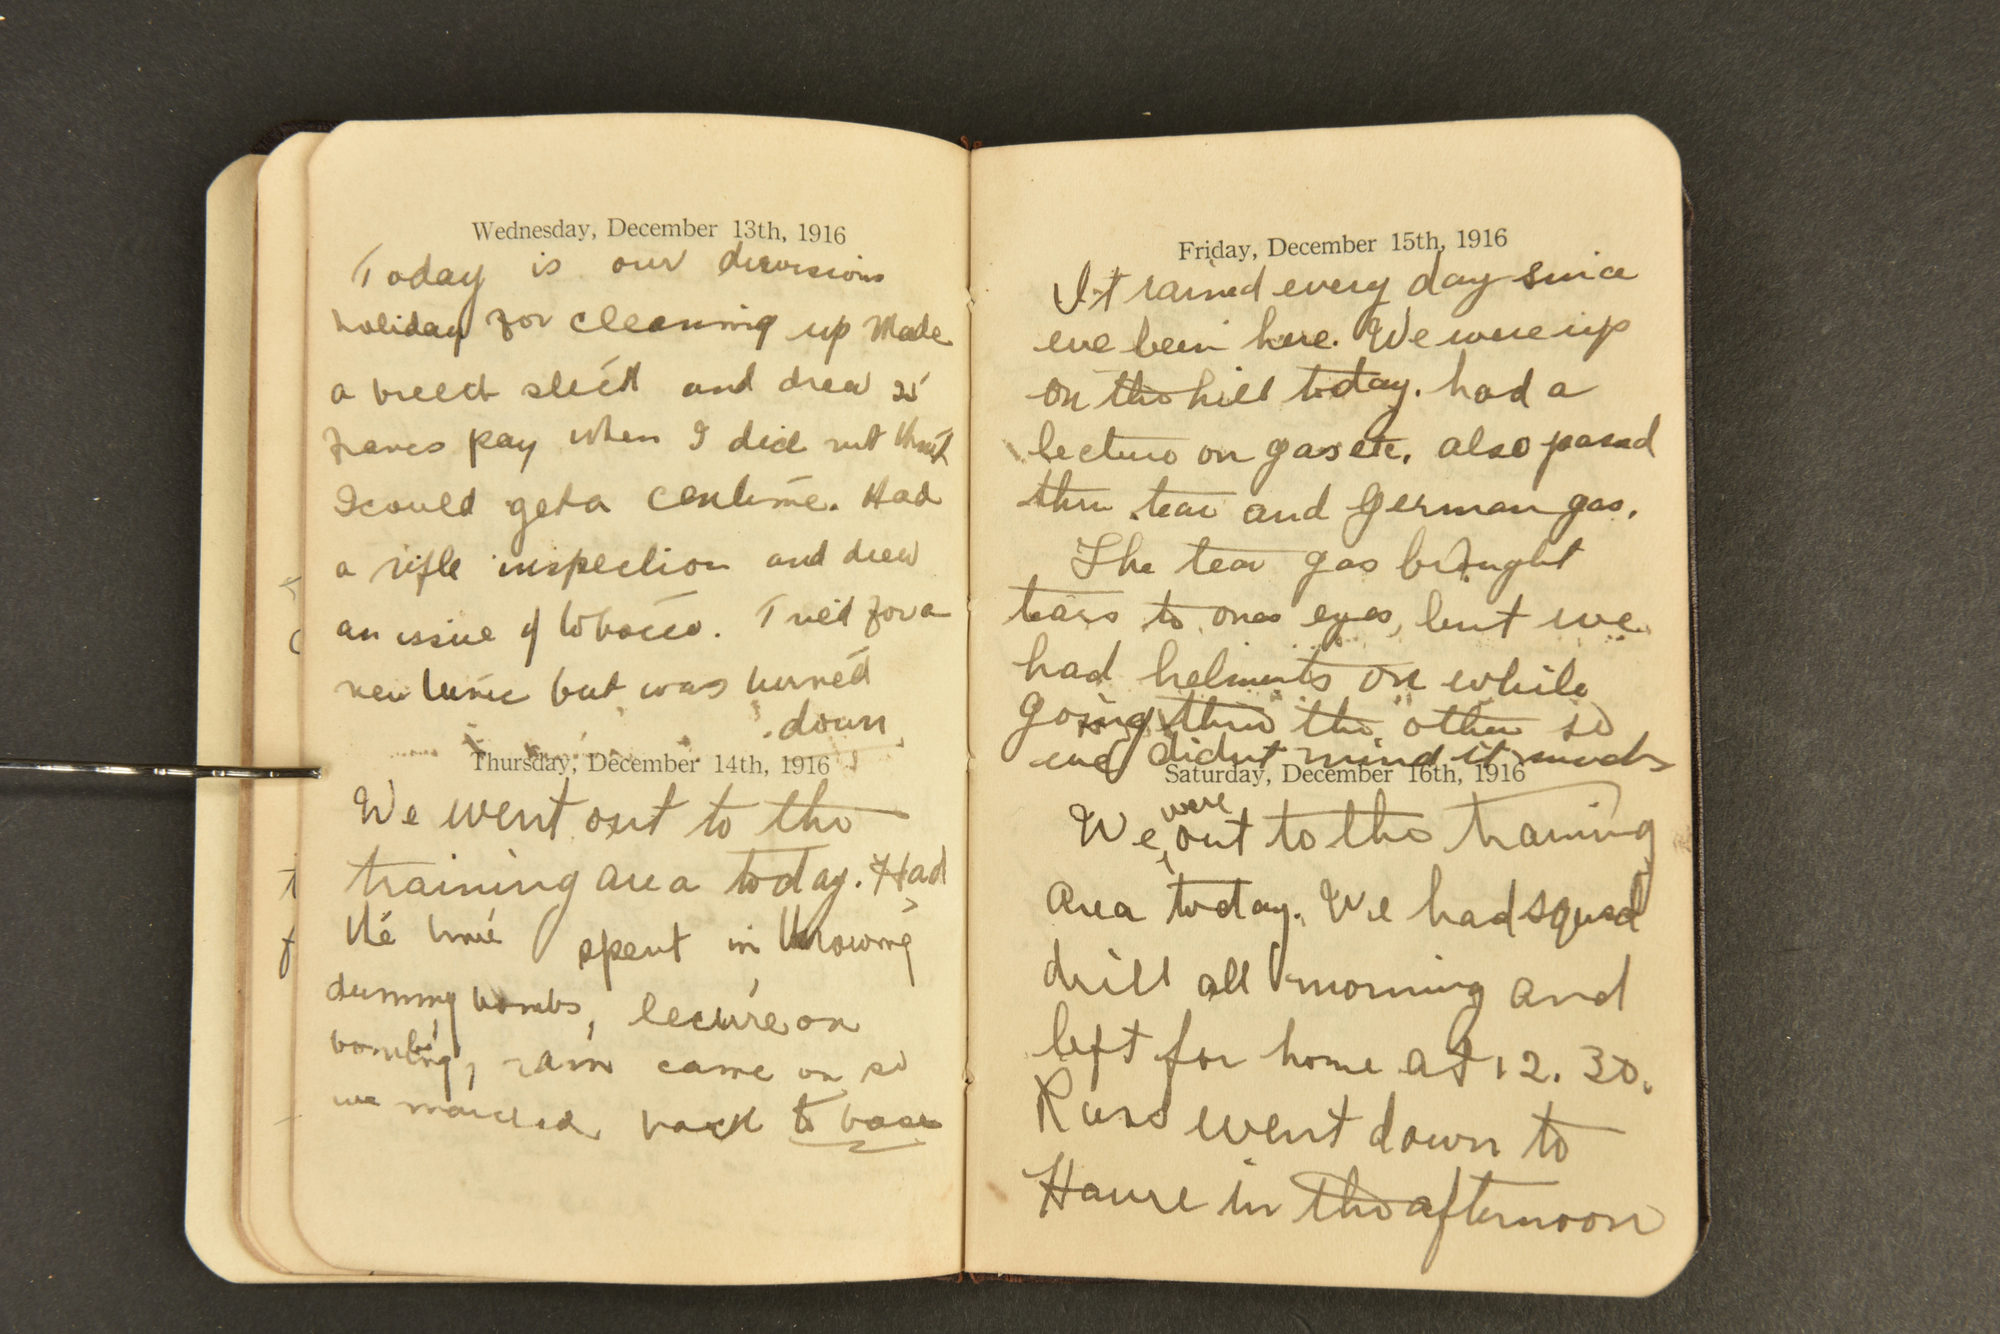 Wednesday, December 13th, 1916
Today is our divisions
holiday for cleaning up Made
a and drew 25
francs pay when I did not think
I could get a centime. Had
a rifle inspection and drew
an issue of tobacco. Tried for a
new tunic but was turned
down
Thursday, December 14th, 1916
We went out to the
training area today. Had
the time spent in throwing
dummy bombs, lecture on
bombing, rain came on so
we marched back to base
Friday, December 15th, 1916
It rained every day since
we been here. We were up
on the hill today. had a
lecture on gas etc. also passed
thru tear and German gas.
The tear gas brought
tears to ones eyes, but we
had helmets on while
going thru the other so
we didnt mind it much
Saturday, December 16th, 1916
We were out to the training
area today. We had squad
drill all morning and
left for home at 12.30.
Russ went down to
Havre in the afternoon